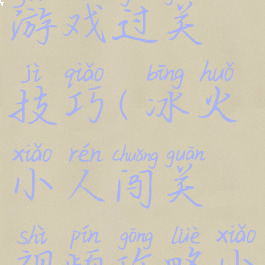 游戏过关
jì qiǎo bīng huǒ
技巧(冰火
xiǎo rén chuǎng guān
小人闯关
shì pín gōng lüè xiǎo
视频攻略小